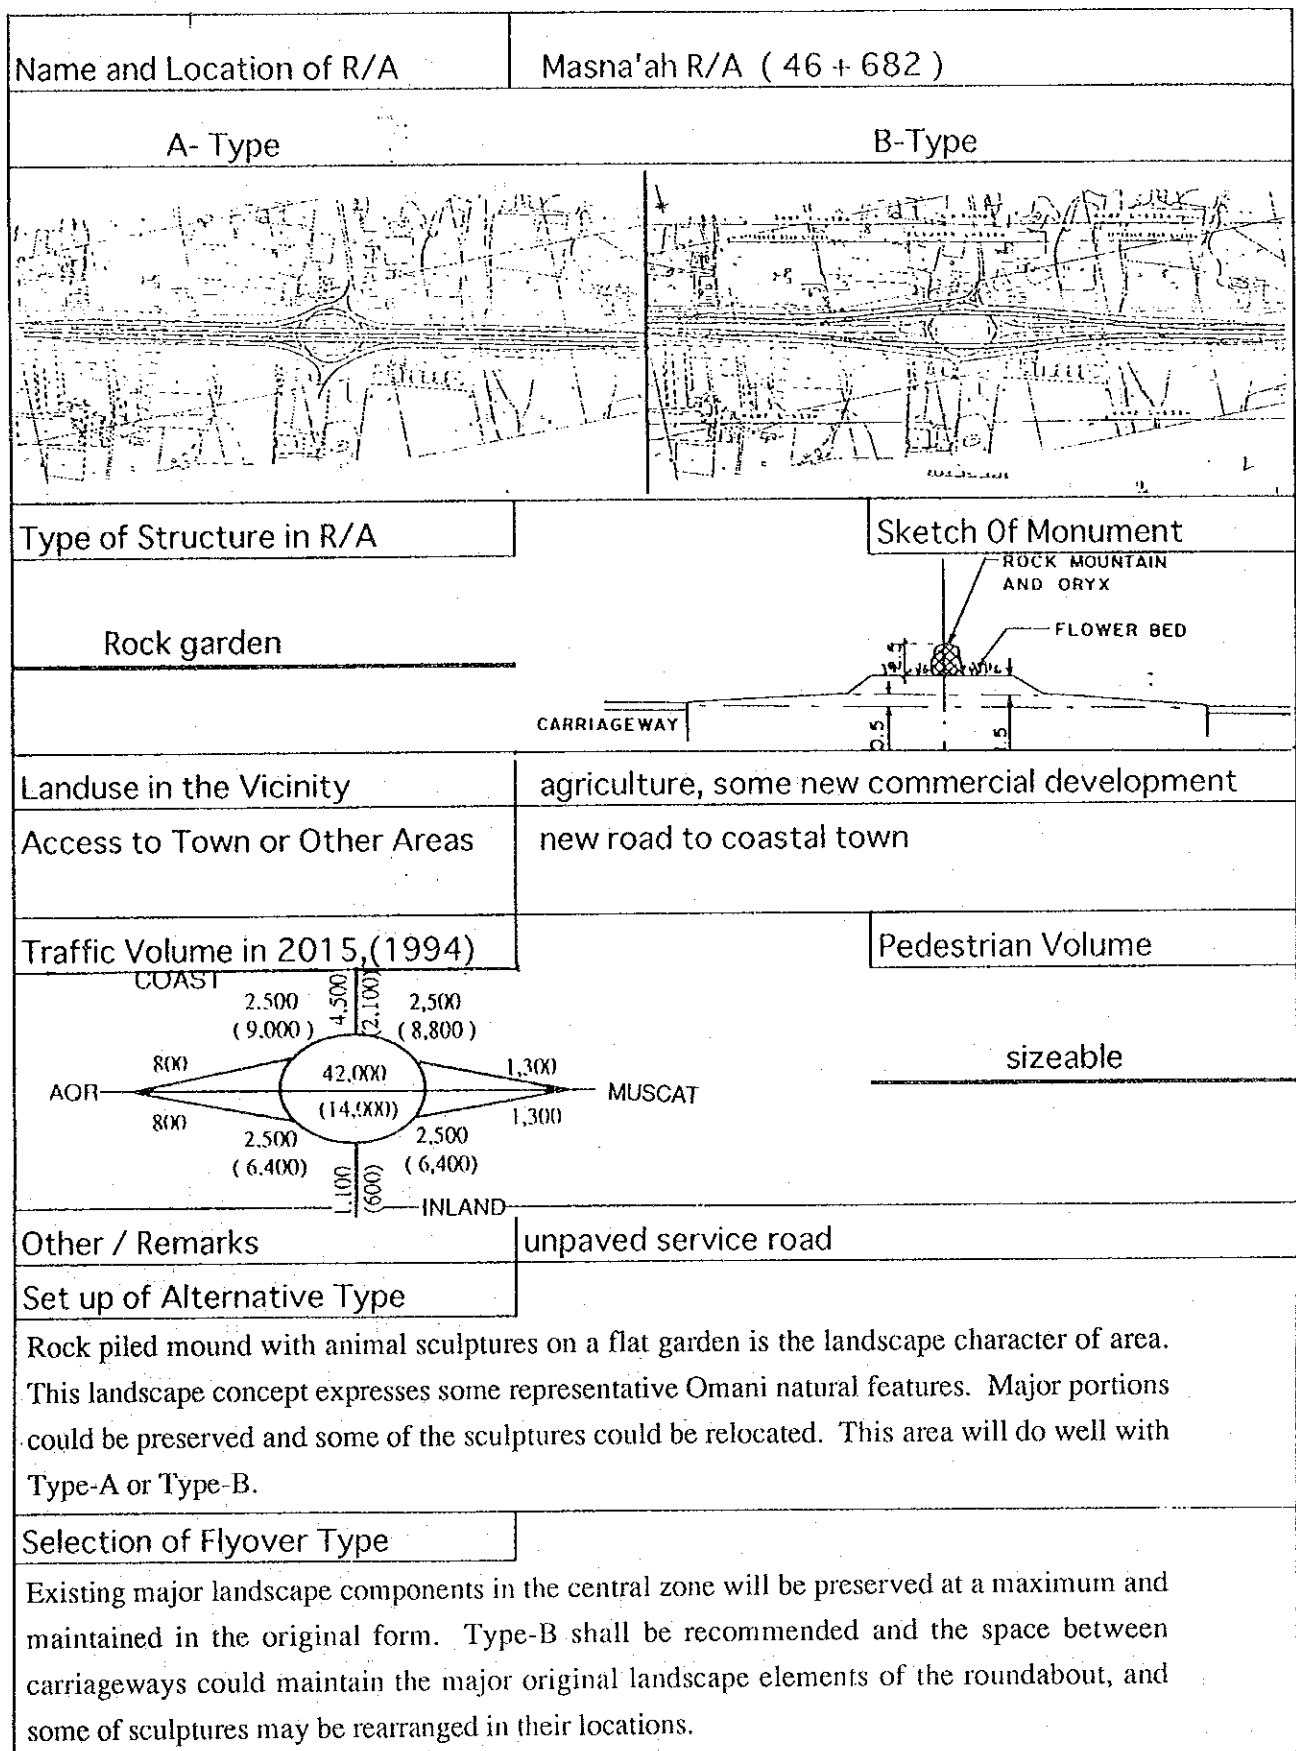 Name and Location of R/A
Masna'ah R/A ( 46 + 682 )
A- Type
B-Type
Type of Structure in R/A
Sketch Of Monument
ROCK MOUNTAIN
AND ORYX
FLOWER BED
Rock garden
CARRIAGEWAY
Landuse in the Vicinity
agriculture, some new commercial development
Access to Town or Other Areas
new road to coastal town
Traffic Volume in 2015,(1994)
Pedestrian Volume
COAST
2.500
4,500
(2,100)
2,500
( 9.000 )
( 8,800 )
800
42,000
1,300
sizeable
AQR
MUSCAT
(14,900)
800
1,300
2.500
2,500
( 6.400)
( 6,400)
1,100
(600)
INLAND
Other / Remarks
unpaved service road
Set up of Alternative Type
Rock piled mound with animal sculptures on a flat garden is the landscape character of area.
This landscape concept expresses some representative Omani natural features. Major portions
could be preserved and some of the sculptures could be relocated. This area will do well with
Type-A or Type-B.
Selection of Flyover Type
Existing major landscape components in the central zone will be preserved at a maximum and
maintained in the original form. Type-B shall be recommended and the space between
carriageways could maintain the major original landscape elements of the roundabout, and
some of sculptures may be rearranged in their locations.